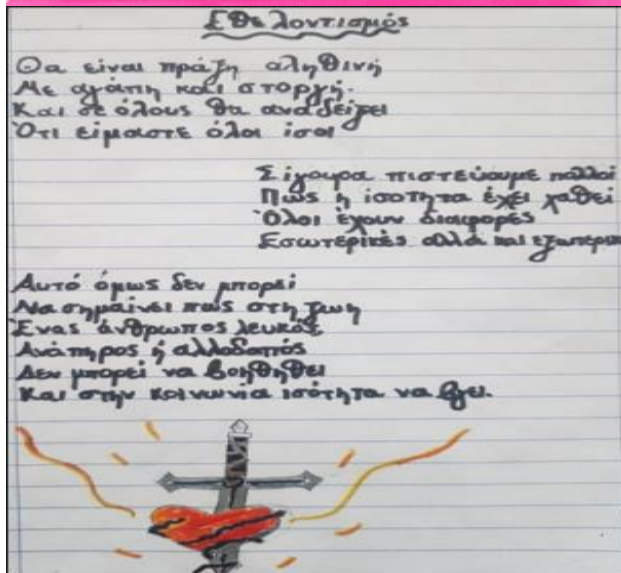 Εθελοντισμός
Θα είναι πράξη αληθινή
Με αγάπη και στοργή.
Και σε όλους θα αναδείξει
Ότι είμαστε όλοι ίσοι
Σίγουρα πιστεύουμε πολλοί
Πως η ισότητα έχει χαθεί
Όλοι έχουν διαφορές
Εσωτερικές αλλά και εξωτερικ
Αυτό όμως δεν μπορεί
Να σημαίνει πως στη ζωή
Ένας άνθρωπος λευκός
Ανάπηρος ή αλλοδαπός
Δεν μπορεί να βοηθηθεί
Και στην κοινωνία ισότητα να βγει.